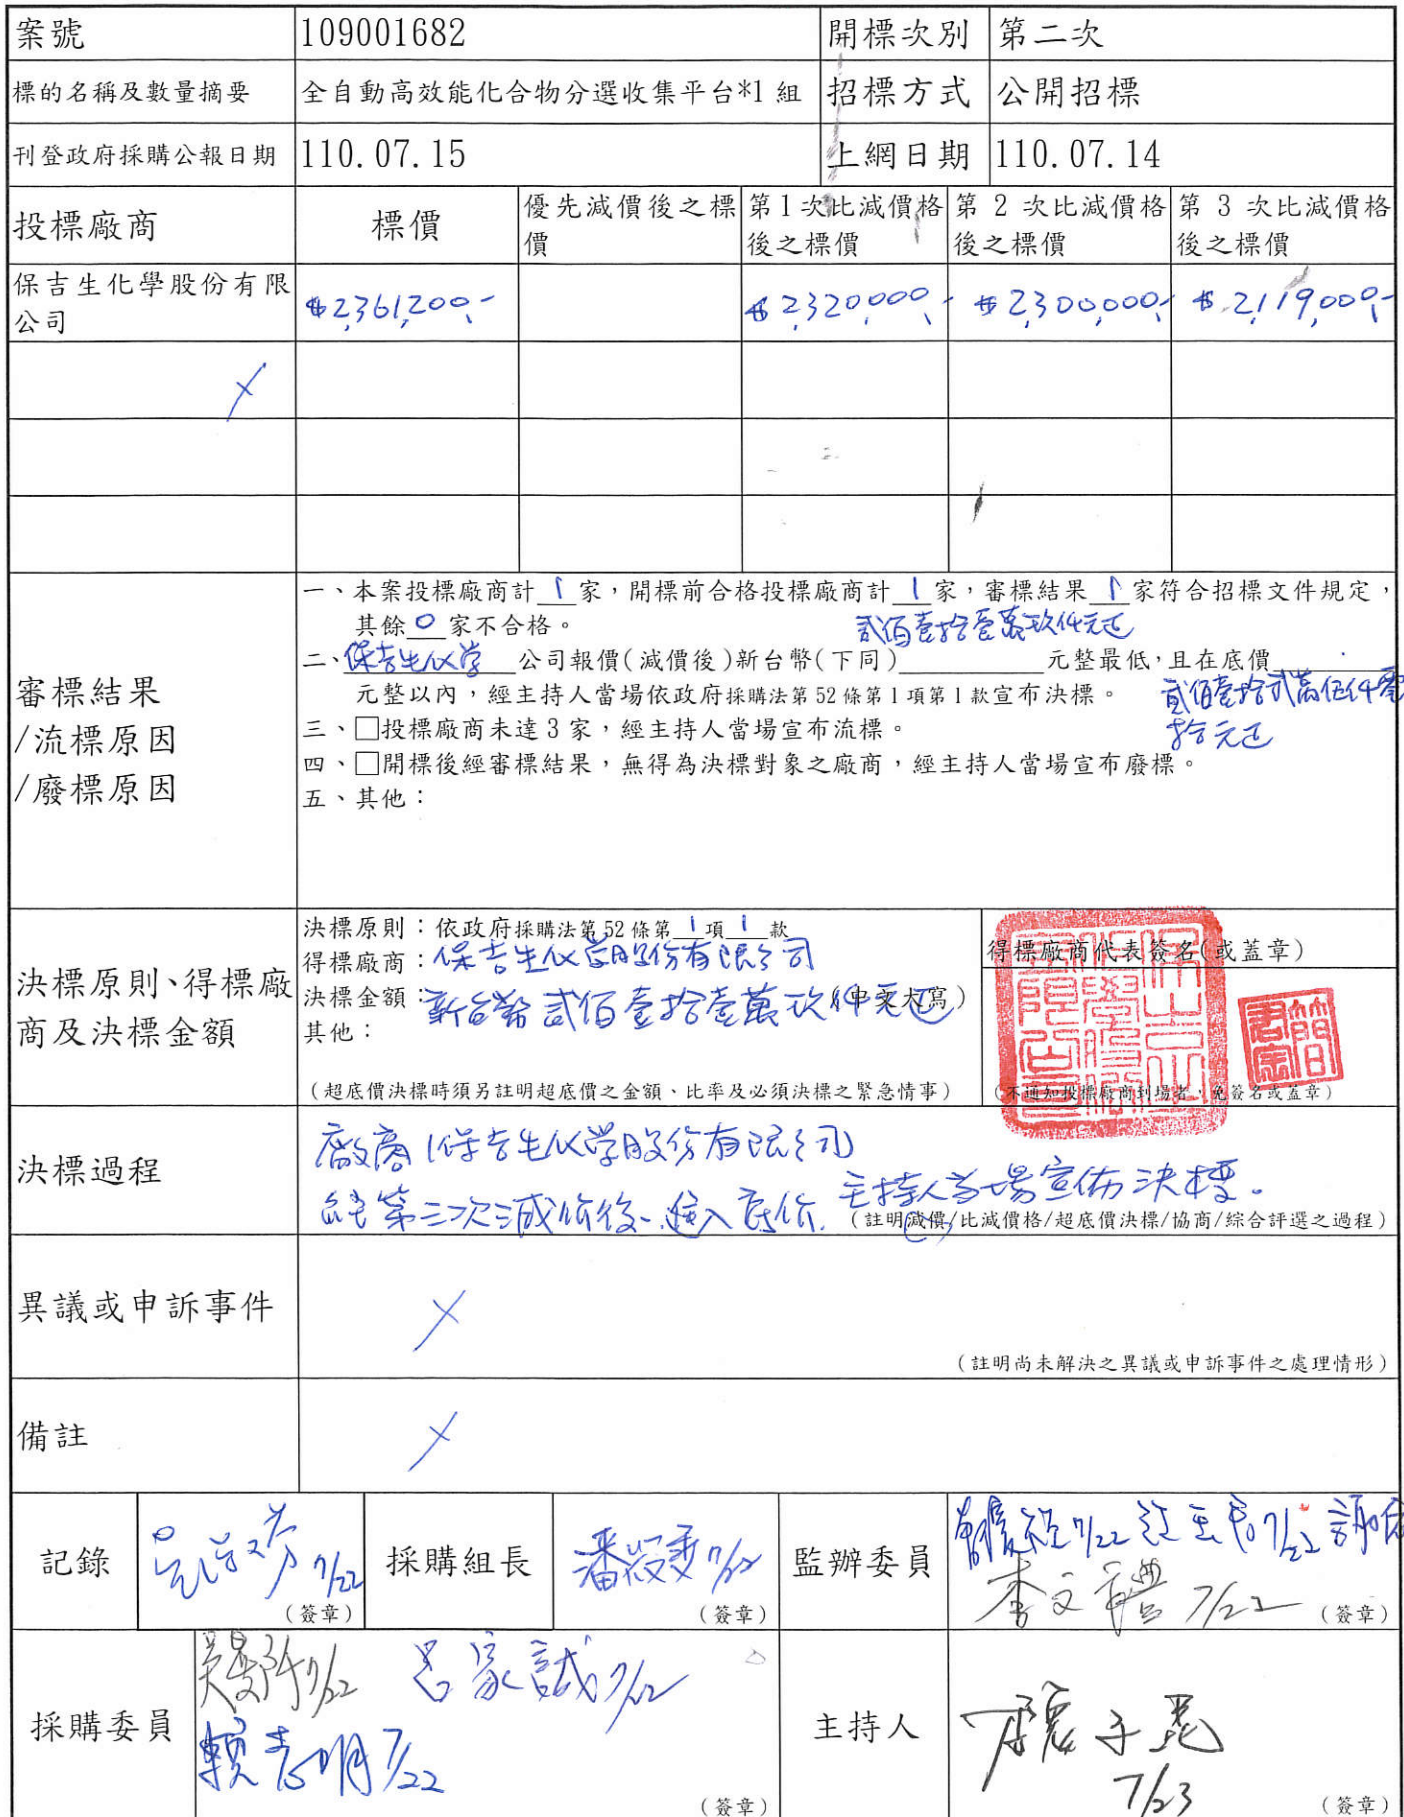 案號 109001682 開標次別 第二次
標的名稱及數量摘要 全自動高效能化合物分選收集平台*1 組 招標方式 公開招標
刊登政府採購公報日期 110.07.15 上網日期 110.07.14
投標廠商 標價 優先減價後之標價 第1次比減價格後之標價 第 2 次比減價格後之標價 第 3 次比減價格後之標價
保吉生化學股份有限公司 $2,361,200,- $2,320,000,- $2,300,000,- $2,119,000,-
審標結果
/流標原因
/廢標原因
一、本案投標廠商計 1 家，開標前合格投標廠商計 1 家，審標結果 1 家符合招標文件規定，
其餘 0 家不合格。
貳佰壹拾壹萬玖仟元正
二、保吉生化学 公司報價(減價後)新台幣(下同) 元整最低，且在底價
元整以內，經主持人當場依政府採購法第52條第1項第1款宣布決標。
拾元正
三、□投標廠商未達3家，經主持人當場宣布流標。
四、□開標後經審標結果，無得為決標對象之廠商，經主持人當場宣布廢標。
五、其他：
決標原則、得標廠商及決標金額
決標原則：依政府採購法第52條第 1 項 1 款
得標廠商：保吉生化学股份有限公司
決標金額：新台幣貳佰壹拾壹萬玖仟元正(中文大寫)
其他：
(超底價決標時須另註明超底價之金額、比率及必須決標之緊急情事)
得標廠商代表簽名(或蓋章)
(不通知投標廠商到場者，免簽名或蓋章)
決標過程
廠商(保吉生化学股份有限公司)
經第三次減价後、進入底价，主持人当場宣佈決標。
(註明減價/比減價格/超底價決標/協商/綜合評選之過程)
異議或申訴事件
(註明尚未解決之異議或申訴事件之處理情形)
備註
記錄 7/22 (簽章) 採購組長 7/22 (簽章) 監辦委員 7/22 7/22
李文 7/22 (簽章)
採購委員 7/22 呂家誠 7/22
賴志明 7/22 (簽章)
主持人 7/23 (簽章)